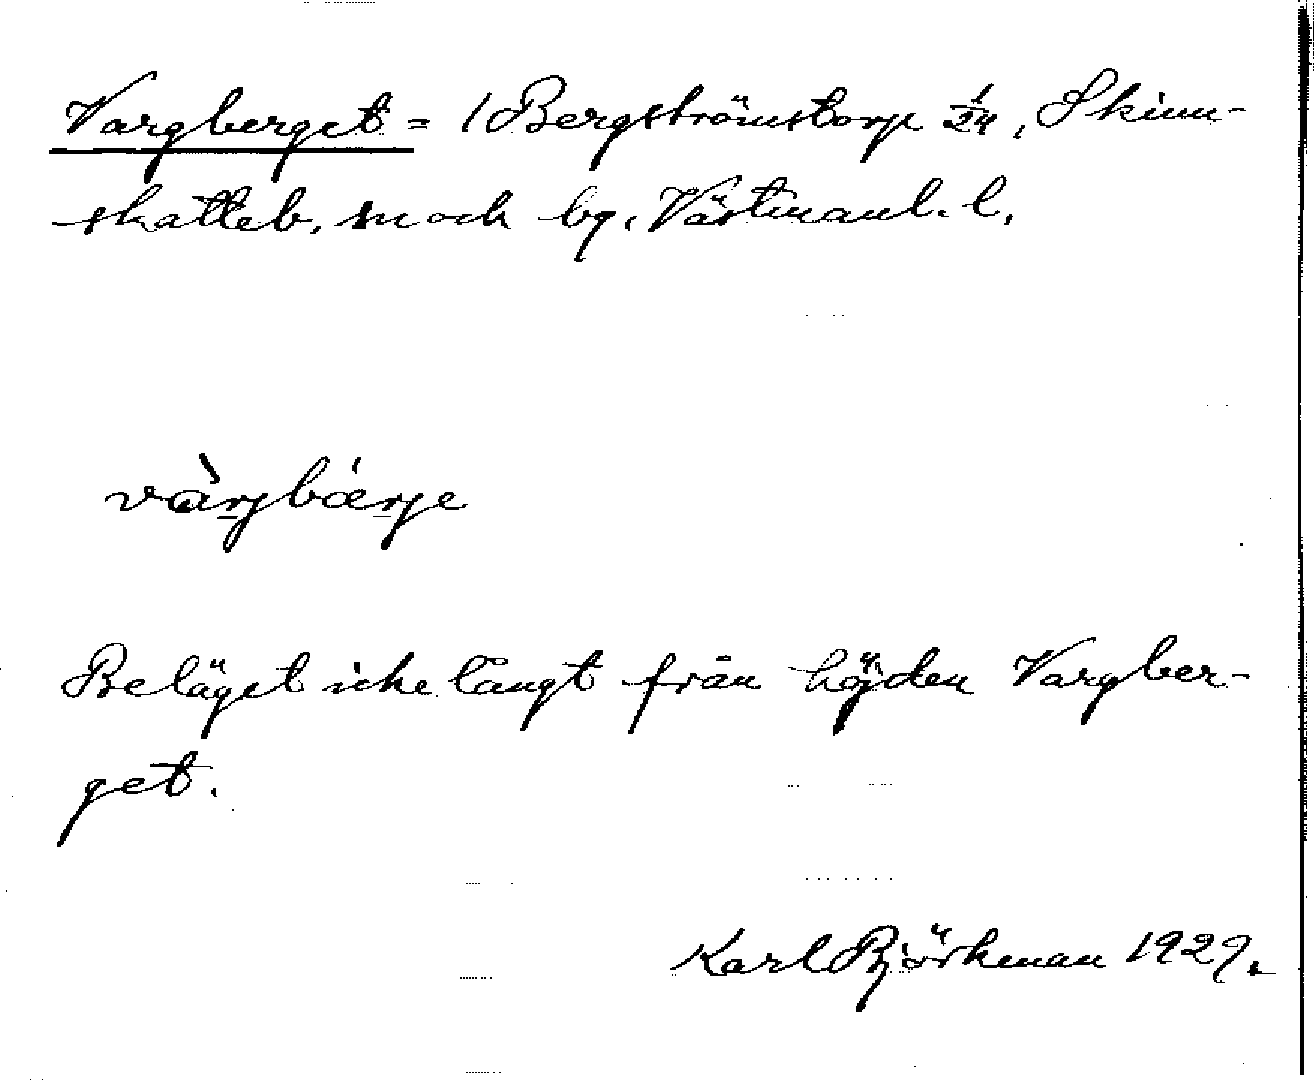 Vargberget = / Bergströmstorp 1/24, Skinn-
skatteb. sn och bg. Västmanl. l.
vàrjbærje
Beläget icke långt från höjden Vargber-
get.
Karl Björkman 1929.